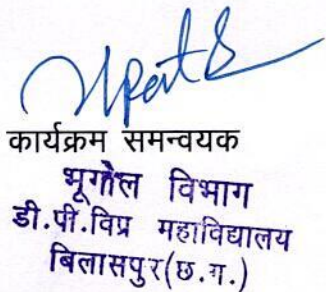 कार्यक्रम समन्वयक
भूगोल विभाग
डी.पी.विप्र महाविद्यालय
बिलासपुर(छ.ग.)